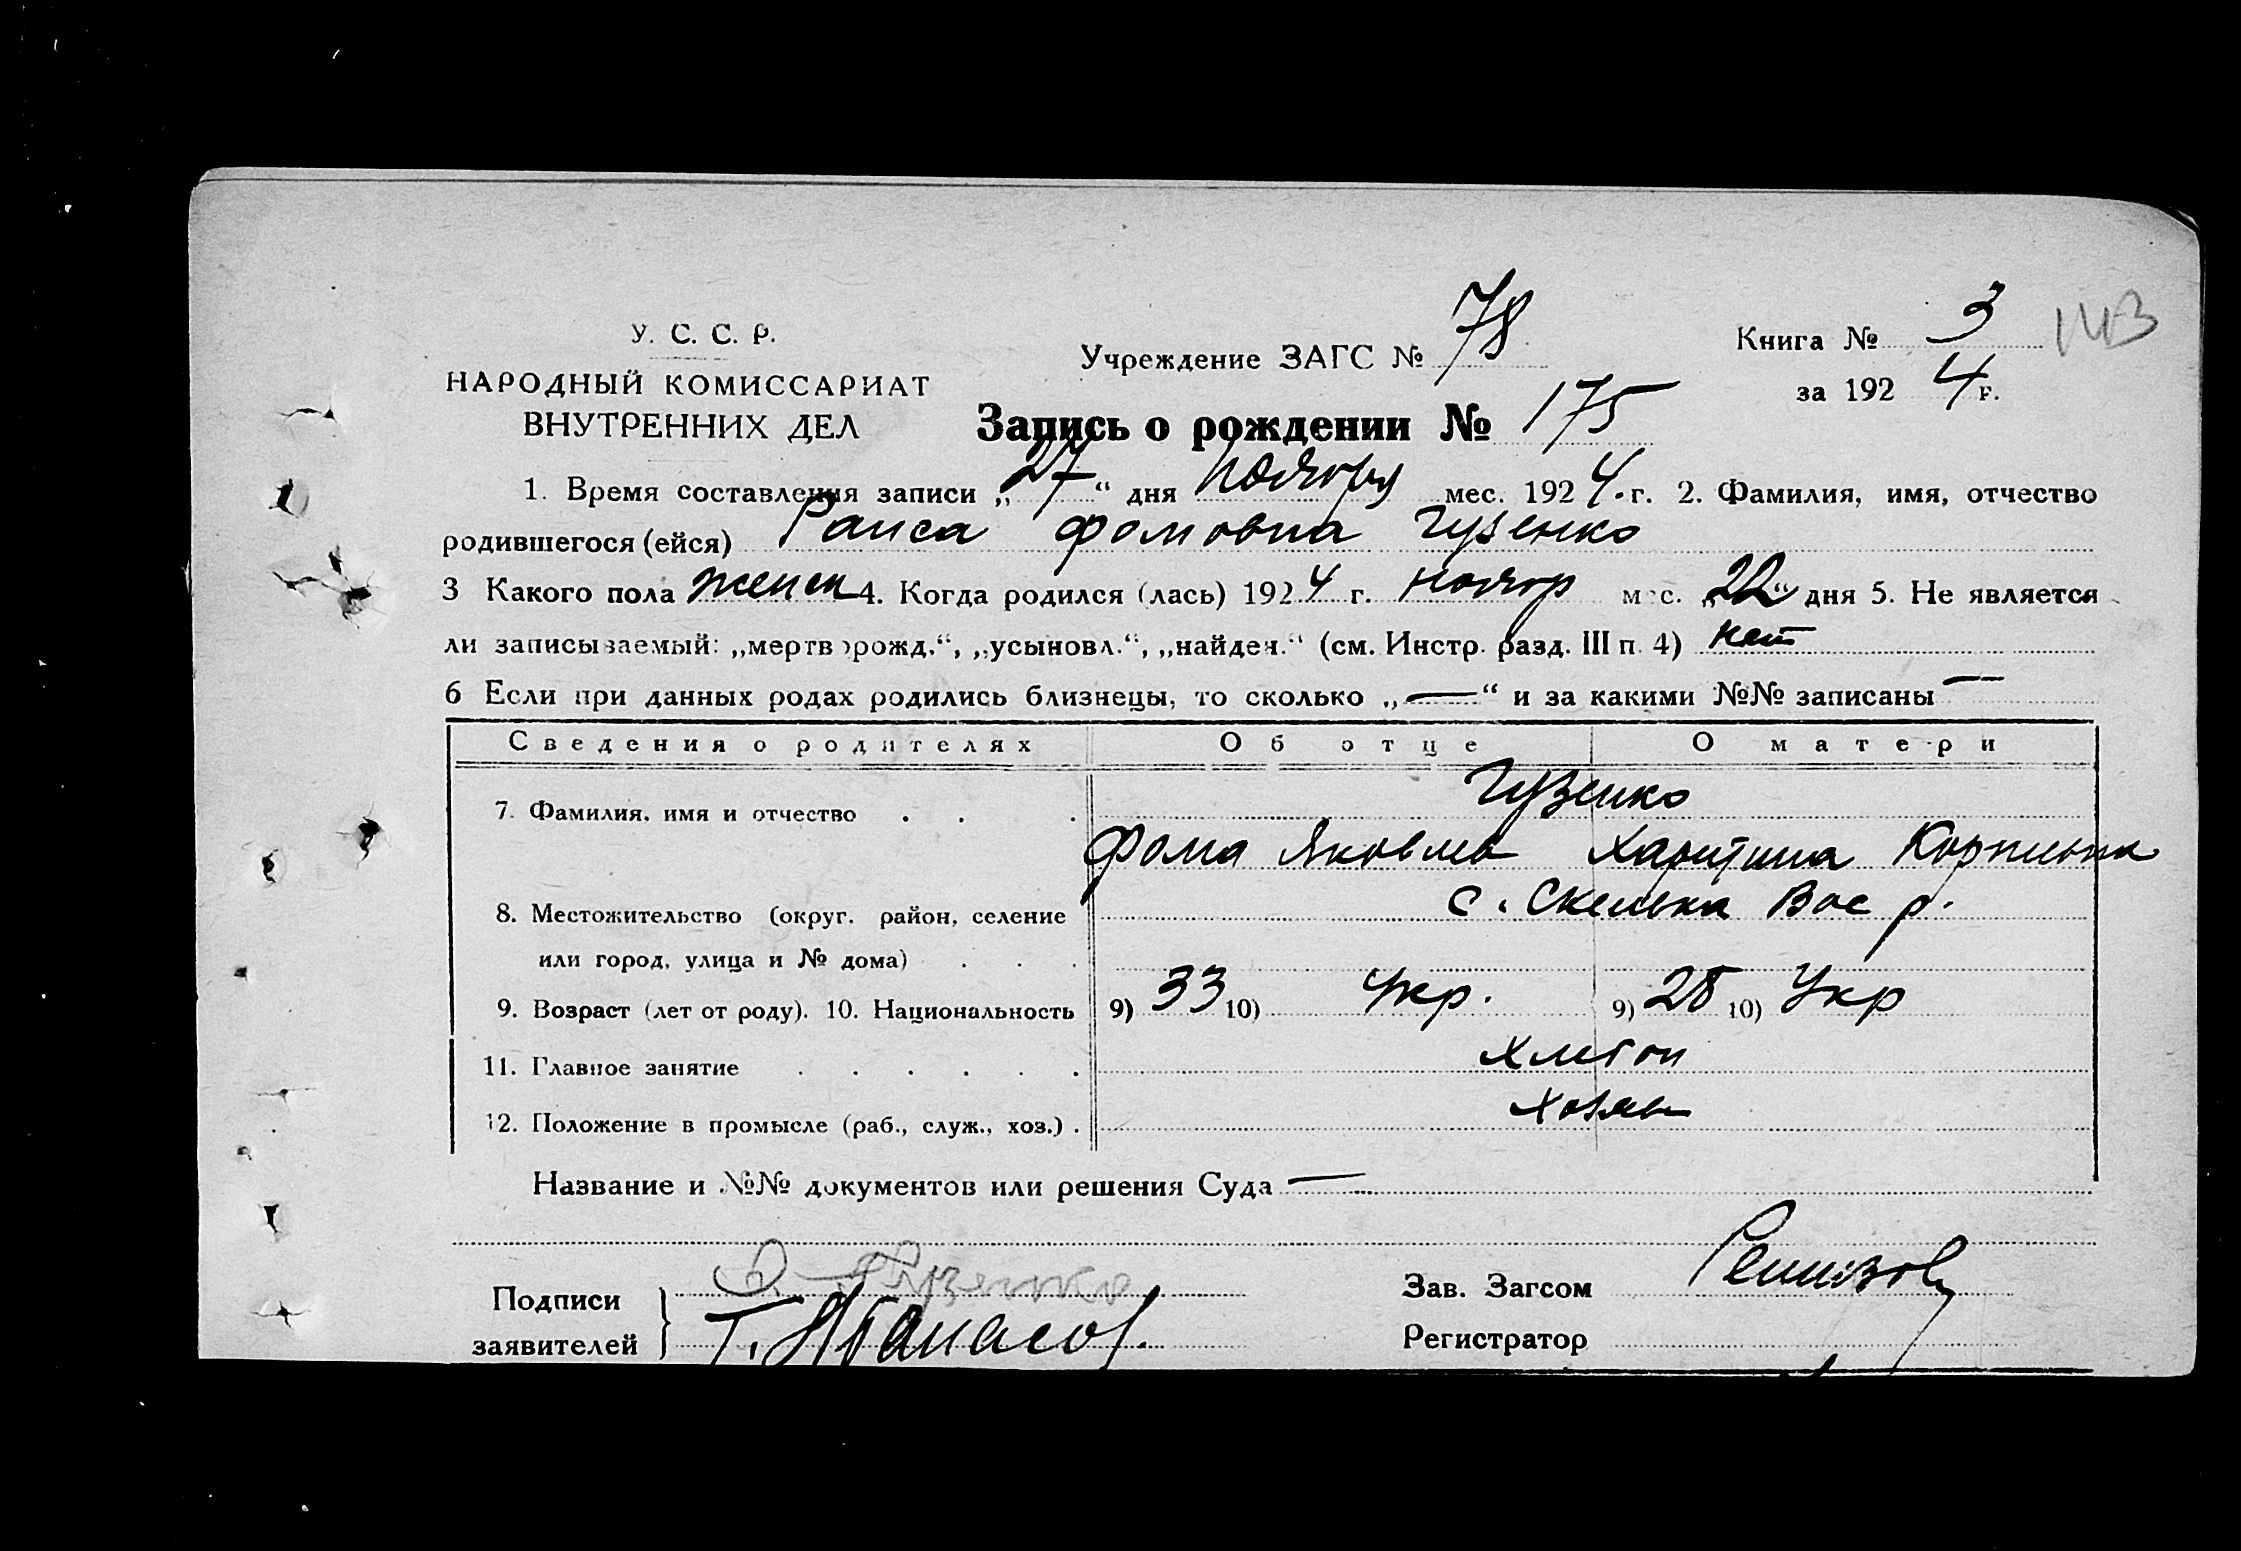 У. С. С. Р.
НАРОДНЫЙ КОМИССАРИАТ
ВНУТРЕННИХ ДЕЛ
Учреждение ЗАГС № 78
Книга № 3 143
за 1924 г.
Запись о рождении № 175
1. Время составления записи „27“ дня ноября мес. 1924. г. 2. Фамилия, имя, отчество
родившегося (ейся) Раиса Фомовна Гузенко
3 Какого пола женск 4. Когда родился (лась) 1924 г. ноябр мес. „22“ дня 5. Не является
ли записываемый: „мертворожд.“, „усыновл.“, „найден.“ (см. Инстр. разд. III п. 4) нет
6 Если при данных родах родились близнецы, то сколько „—“ и за какими №№ записаны —
Сведения о родителях Об отце О матери
Гузенко
7. Фамилия, имя и отчество . . .
Фома Яковлев Харитина
с. Скелька Вас р.
8. Местожительство (округ. район, селение
или город, улица и № дома) . . .
9. Возраст (лет от роду). 10. Национальность 9) 33 10) Укр. 9) 28 10) Укр
11. Главное занятие . . . . . . Хлебоп
12. Положение в промысле (раб., служ., хоз.) . Хозяев
Название и №№ документов или решения Суда —
Подписи
заявителей
Гузенко
Т. Афанасов.
Зав. Загсом Ремизов
Регистратор